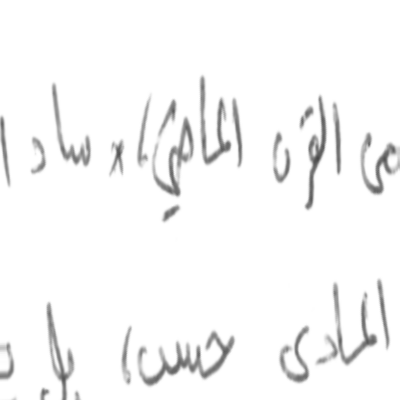 القرن الماضي، × ساد
المادى حسب، بل